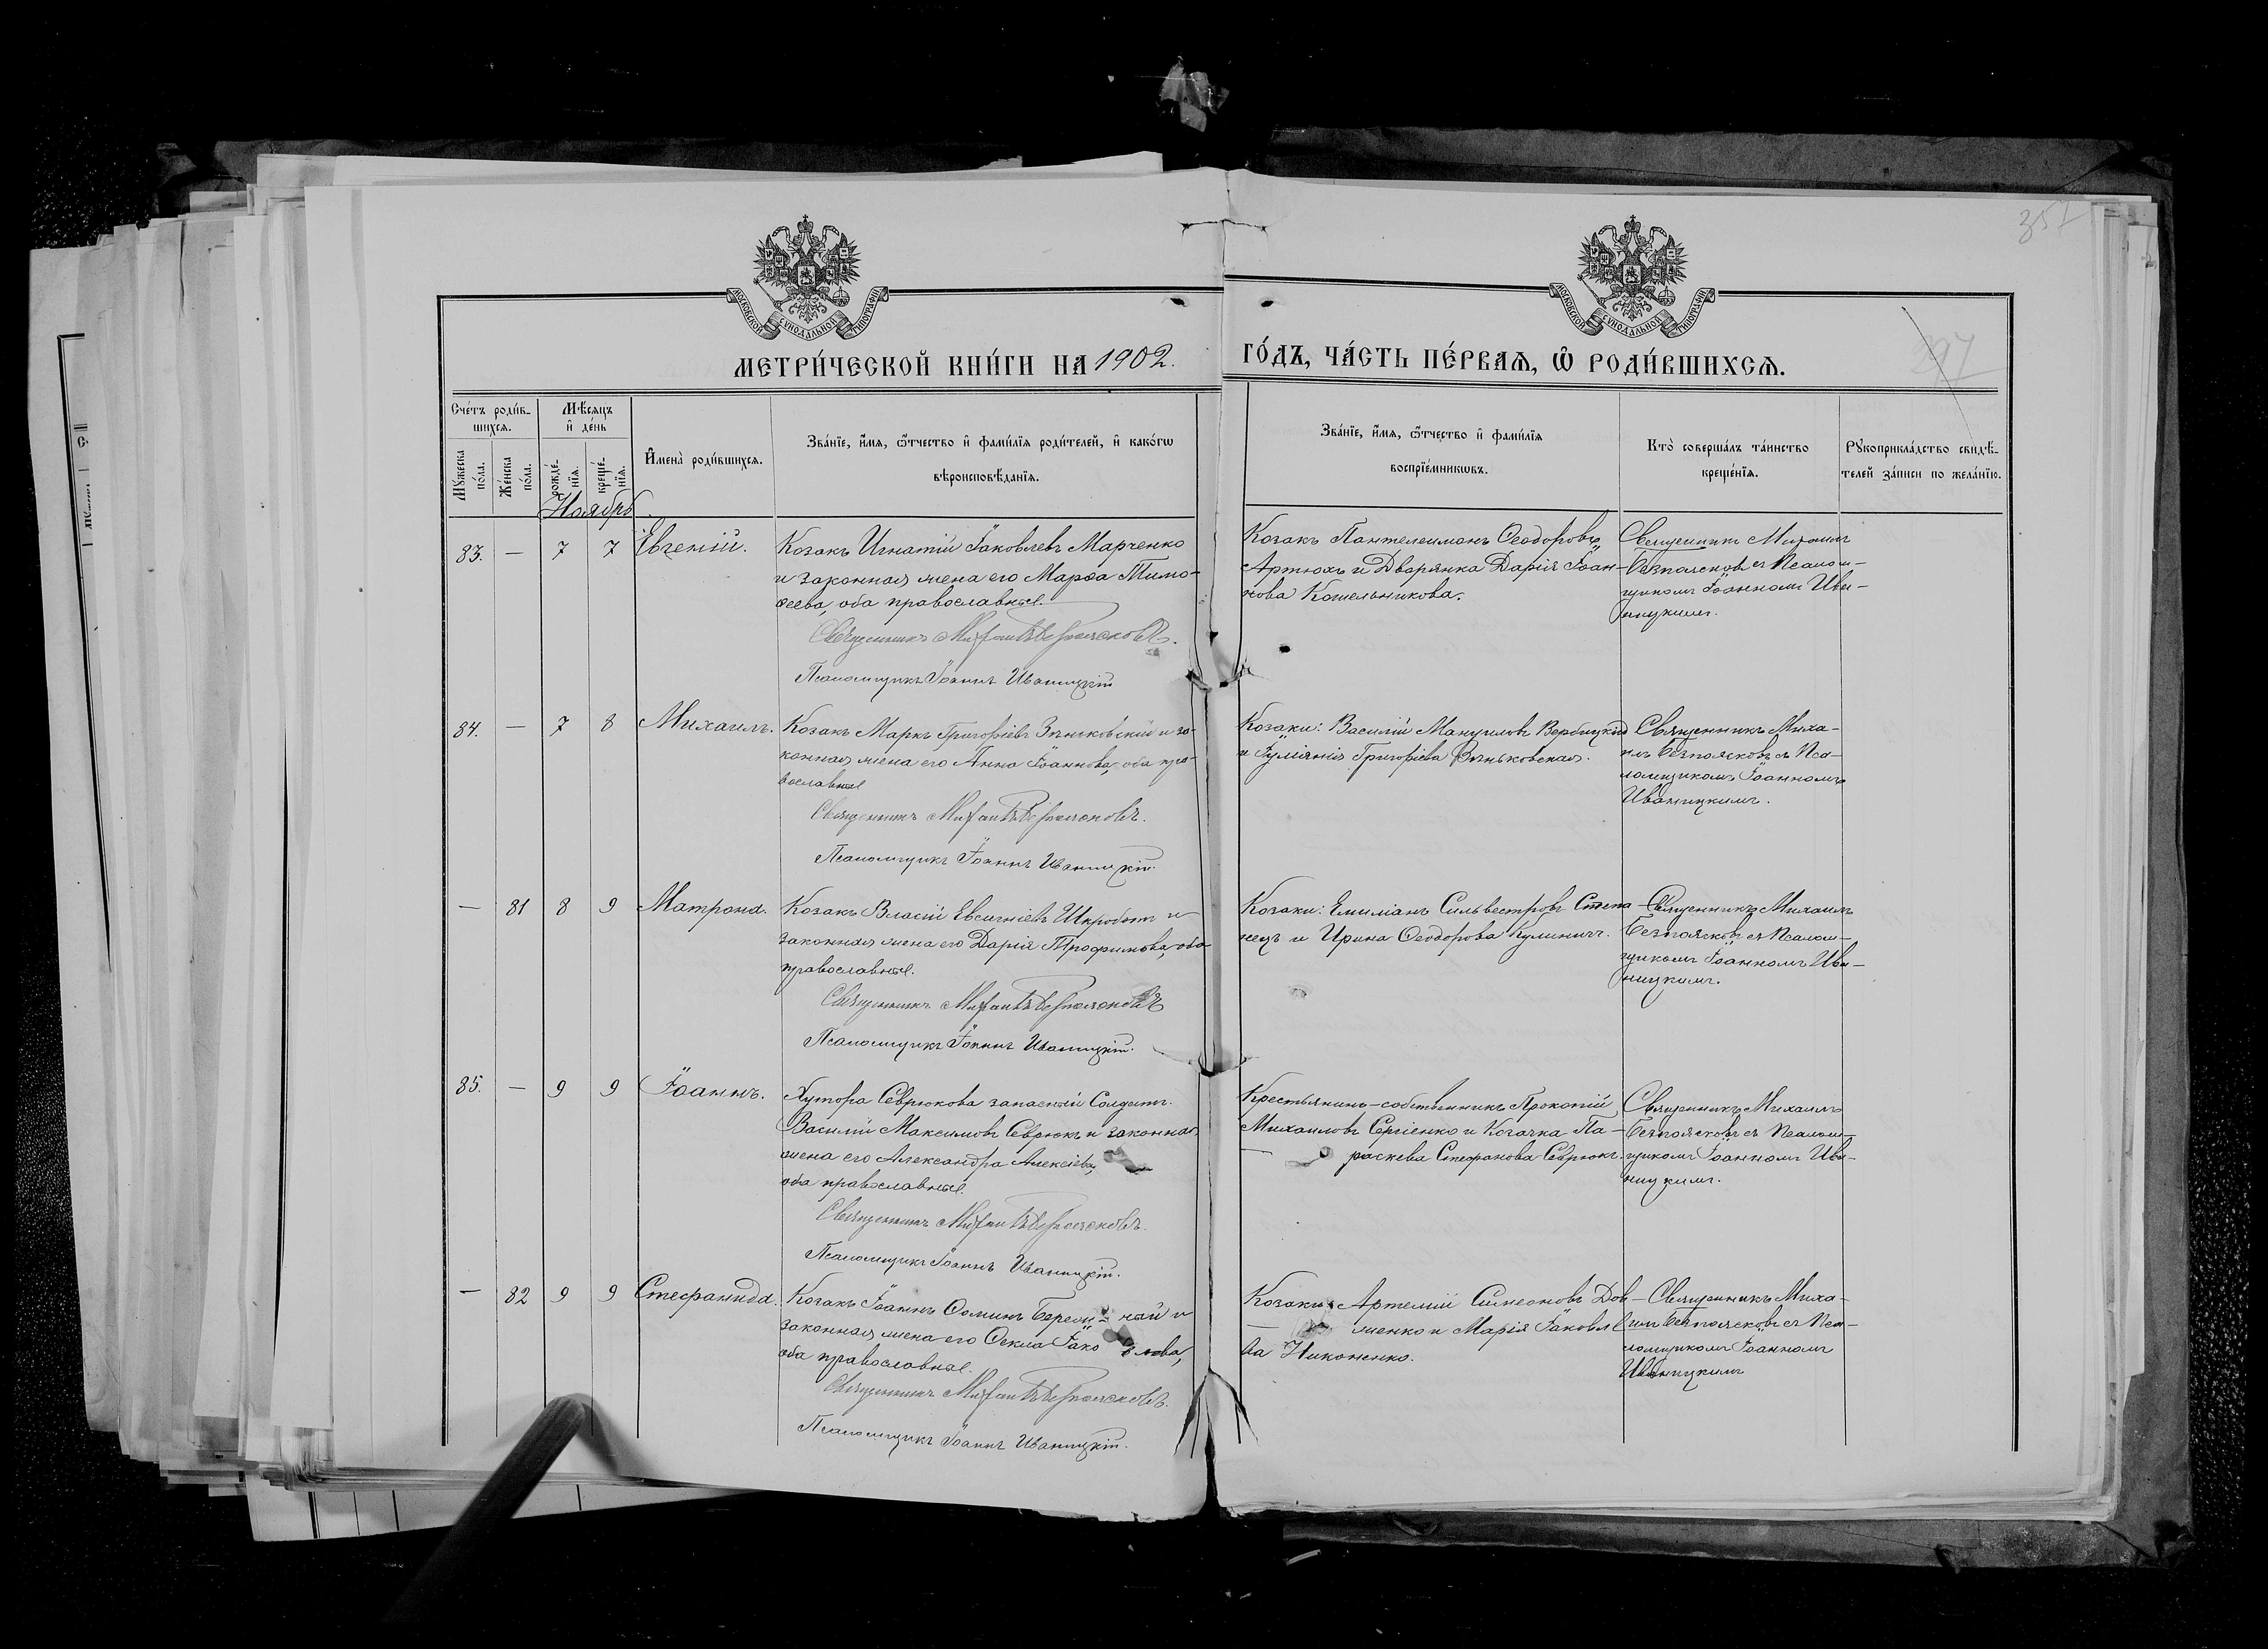 351
297
МОСКОВСКОЙ СѴНОДАЛЬНОЙ ТИПОГРАФІИ
МОСКОВСКОЙ СѴНОДАЛЬНОЙ ТИПОГРАФІИ
МЕТРИ́ЧЕСКОЙ КНИ́ГИ НА 1902.
ГО́ДЪ, ЧА́СТЬ ПЕ́РВАѦ, Ѽ РОДИ́ВШИХСѦ.
Сче́тъ роди́в-
шихсѧ.
Мꙋ́жеска по́ла.
Же́нска по́ла.
Мѣ́сѧцъ
и҆ де́нь
рожде́-
нїѧ.
креще́-
нїѧ.
И҆мена̀ роди́вшихсѧ.
Зва́нїе, и҆́мѧ, ѻ҆́тчество и҆ фами́лїѧ роди́телей, и҆ како́гѡ
вѣроисповѣ́данїѧ.
Зва́нїе, и҆́мѧ, ѻ҆́тчество и҆ фами́лїѧ
воспрїе́мникѡвъ.
Кто̀ соверша́лъ та́инство
креще́нїѧ.
Рꙋкоприкла́дство свидѣ́-
телей за́писи по жела́нїю.
Ноябрь.
83. — 7 7 Евгеній.
Козакъ Игнатій Іаковлевъ Марченко
и законная жена его Марѳа Тимо-
ѳеева, оба православные.
Священникъ Михаилъ Безпоясковъ.
Псаломщикъ Іоаннъ Иваницкій
Козакъ Пантелеимонъ Ѳеодоровъ
Артюхъ и Дворянка Дарія Іоан-
нова Кошельникова.
Священникъ Михаилъ
Безпоясковъ съ Псалом-
щикомъ Іоанномъ Ива-
ницкимъ.
84. — 7 8 Михаилъ.
Козакъ Маркъ Григоріевъ Зѣньковскій и за-
конная жена его Анна Іоаннова, оба пра-
вославные
Священникъ Михаилъ Безпоясковъ.
Псаломщикъ Іоаннъ Иваницкій.
Козаки: Василій Мануиловъ Вербицкій
и Іуліянія Григоріева Зѣньковская.
Священникъ Миха-
илъ Безпоясковъ съ Пса-
ломщикомъ Іоанномъ
Иваницкимъ.
— 81 8 9 Матрона.
Козакъ Власій Евсигніевъ Шкроботъ и
законная жена его Дарія Трофимова, оба
православные.
Священникъ Михаилъ Безпоясковъ
Псаломщикъ Іоаннъ Иваницкій.
Козаки: Емиліанъ Сильвестровъ Степа-
нецъ и Ирина Ѳеодорова Кулиничъ.
Священникъ Михаилъ
Безпоясковъ съ Псалом-
щикомъ Іоанномъ Ива-
ницкимъ.
85. — 9 9 Іоаннъ.
Хутора Северюкова запасный Солдатъ
Василій Максимовъ Севрюкъ и законная
жена его Александра Алексіева,
оба православные.
Священникъ Михаилъ Безпоясковъ.
Псаломщикъ Іоаннъ Иваницкій.
Крестьянинъ-собственникъ Прокопій
Михаиловъ Сергіенко и Козачка Па-
раскева Стефанова Севрюкъ.
Священникъ Михаилъ
Безпоясковъ съ Псалом-
щикомъ Іоанномъ Ива-
ницкимъ.
— 82 9 9 Стефанида.
Козакъ Іоаннъ Ѳоминъ и
законная жена его Ѳекла Іаковлева,
оба православные.
Священникъ Михаилъ Безпоясковъ.
Псаломщикъ Іоаннъ Иваницкій.
Козаки: Артемій Симеоновъ Дов-
женко и Марія Іаковле-
ва Никоненко.
Священникъ Миха-
илъ Безпоясковъ съ Пса-
ломщикомъ Іоанномъ
Иваницкимъ